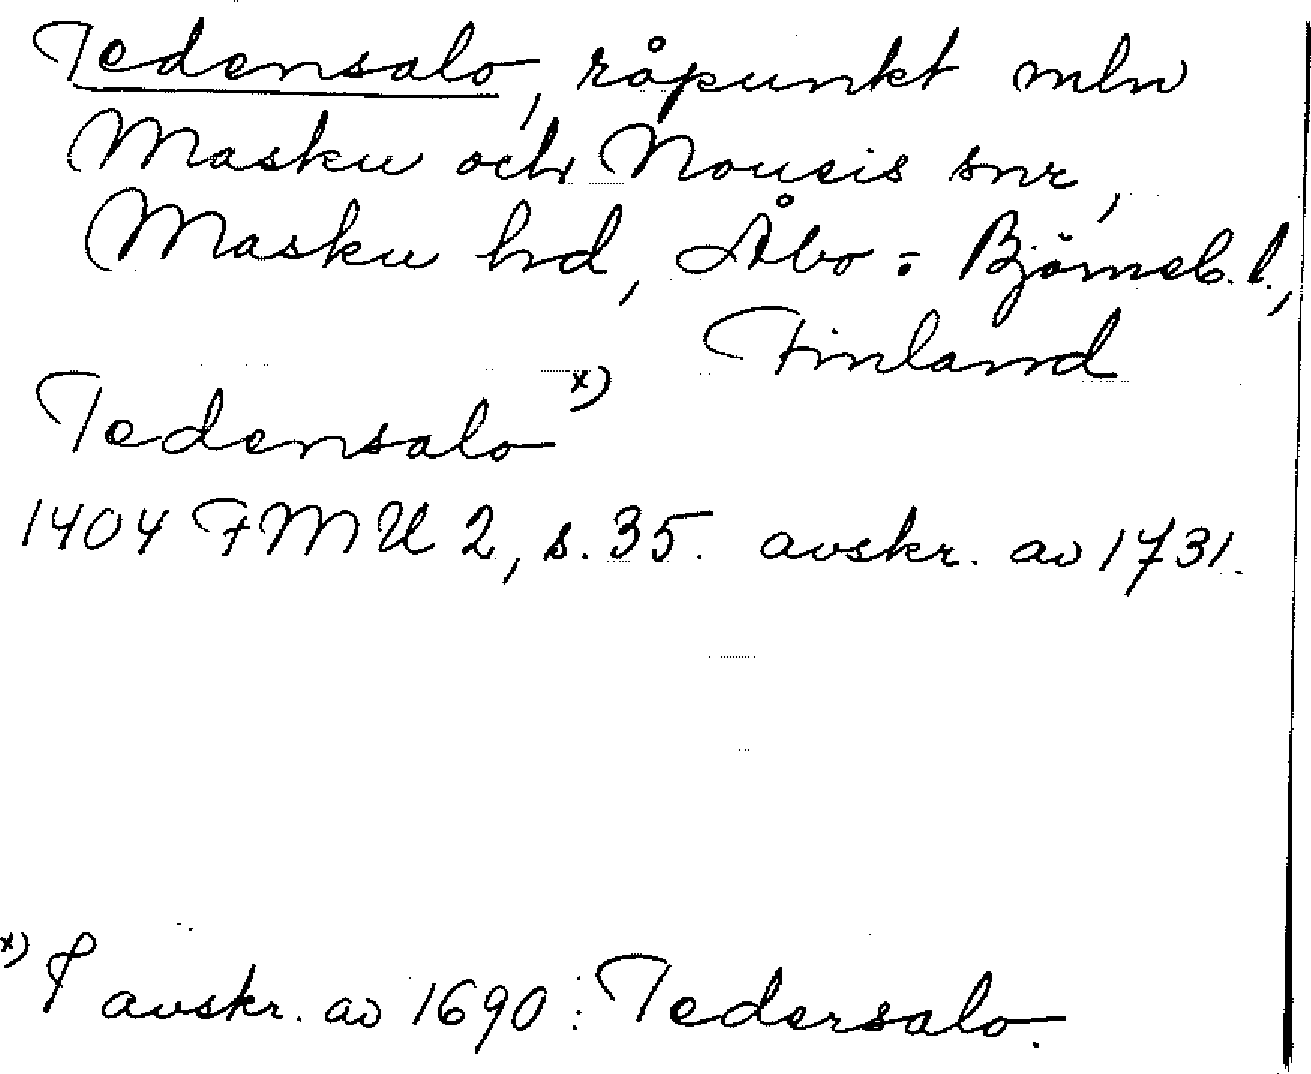 Tedensalo, råpunkt mln
Masku och Nousis snr,
Masku hd, Åbo-Björneb. l.,
Finland
Tedensalo x)
1404 FMU 2, s. 35. avskr. av 1731.
x) I avskr. av 1690: Tedersalo.